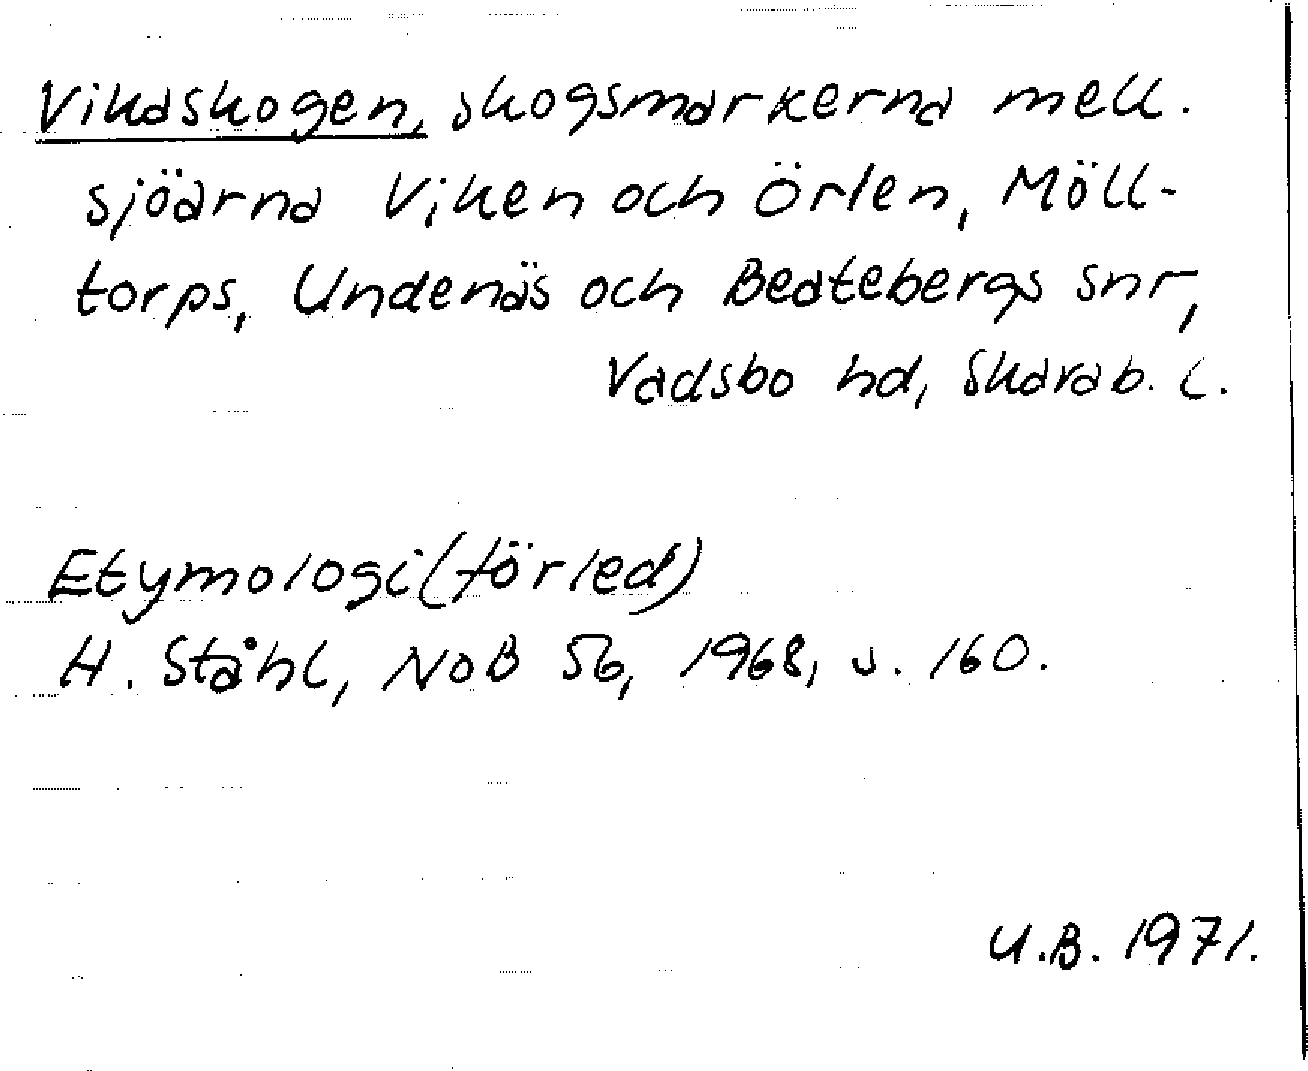 Vikaskogen, skogsmarkerna mell.
sjöarna Viken och Örlen, Möll-
torps, Undenäs och Beatebergs snr,
Vadsbo hd, Skarab. l.
Etymologi (förled)
H. Ståhl, NoB 56, 1968, s. 160.
U.B. 1971.